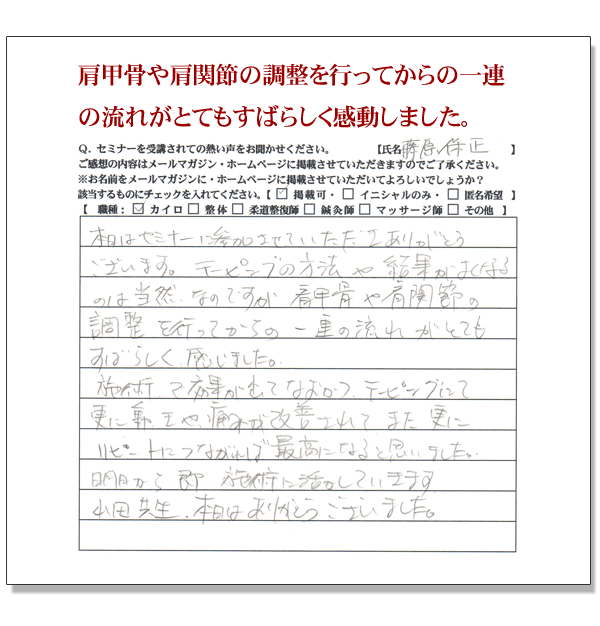 肩甲骨や肩関節の調整を行ってからの一連
の流れがとてもすばらしく感動しました。
Q．セミナーを受講されての熱い声をお聞かせください。 【氏名 藤原保正 】
ご感想の内容はメールマガジン・ホームページに掲載させていただきますのでご了承ください。
※お名前をメールマガジンに・ホームページに掲載させていただいてよろしいでしょうか？
該当するものにチェックを入れてください。【 ☑ 掲載可・ □ イニシャルのみ・ □ 匿名希望 】
【 職種： ☑ カイロ □ 整体 □ 柔道整復師 □ 鍼灸師 □ マッサージ師 □ その他 】
本日はセミナーに参加させていただきありがとう
ございます。テーピングの方法や結果がよくなる
のは当然なのですが肩甲骨や肩関節の
調整を行ってからの一連の流れがとても
すばらしく感じました。
施術で効果が出てなおかつテーピングにて
更に動きや痛みが改善されて、また更に
リピートにつながれば最高になると思いました。
明日から即施術に活かしていきます
山田先生、本日はありがとうございました。